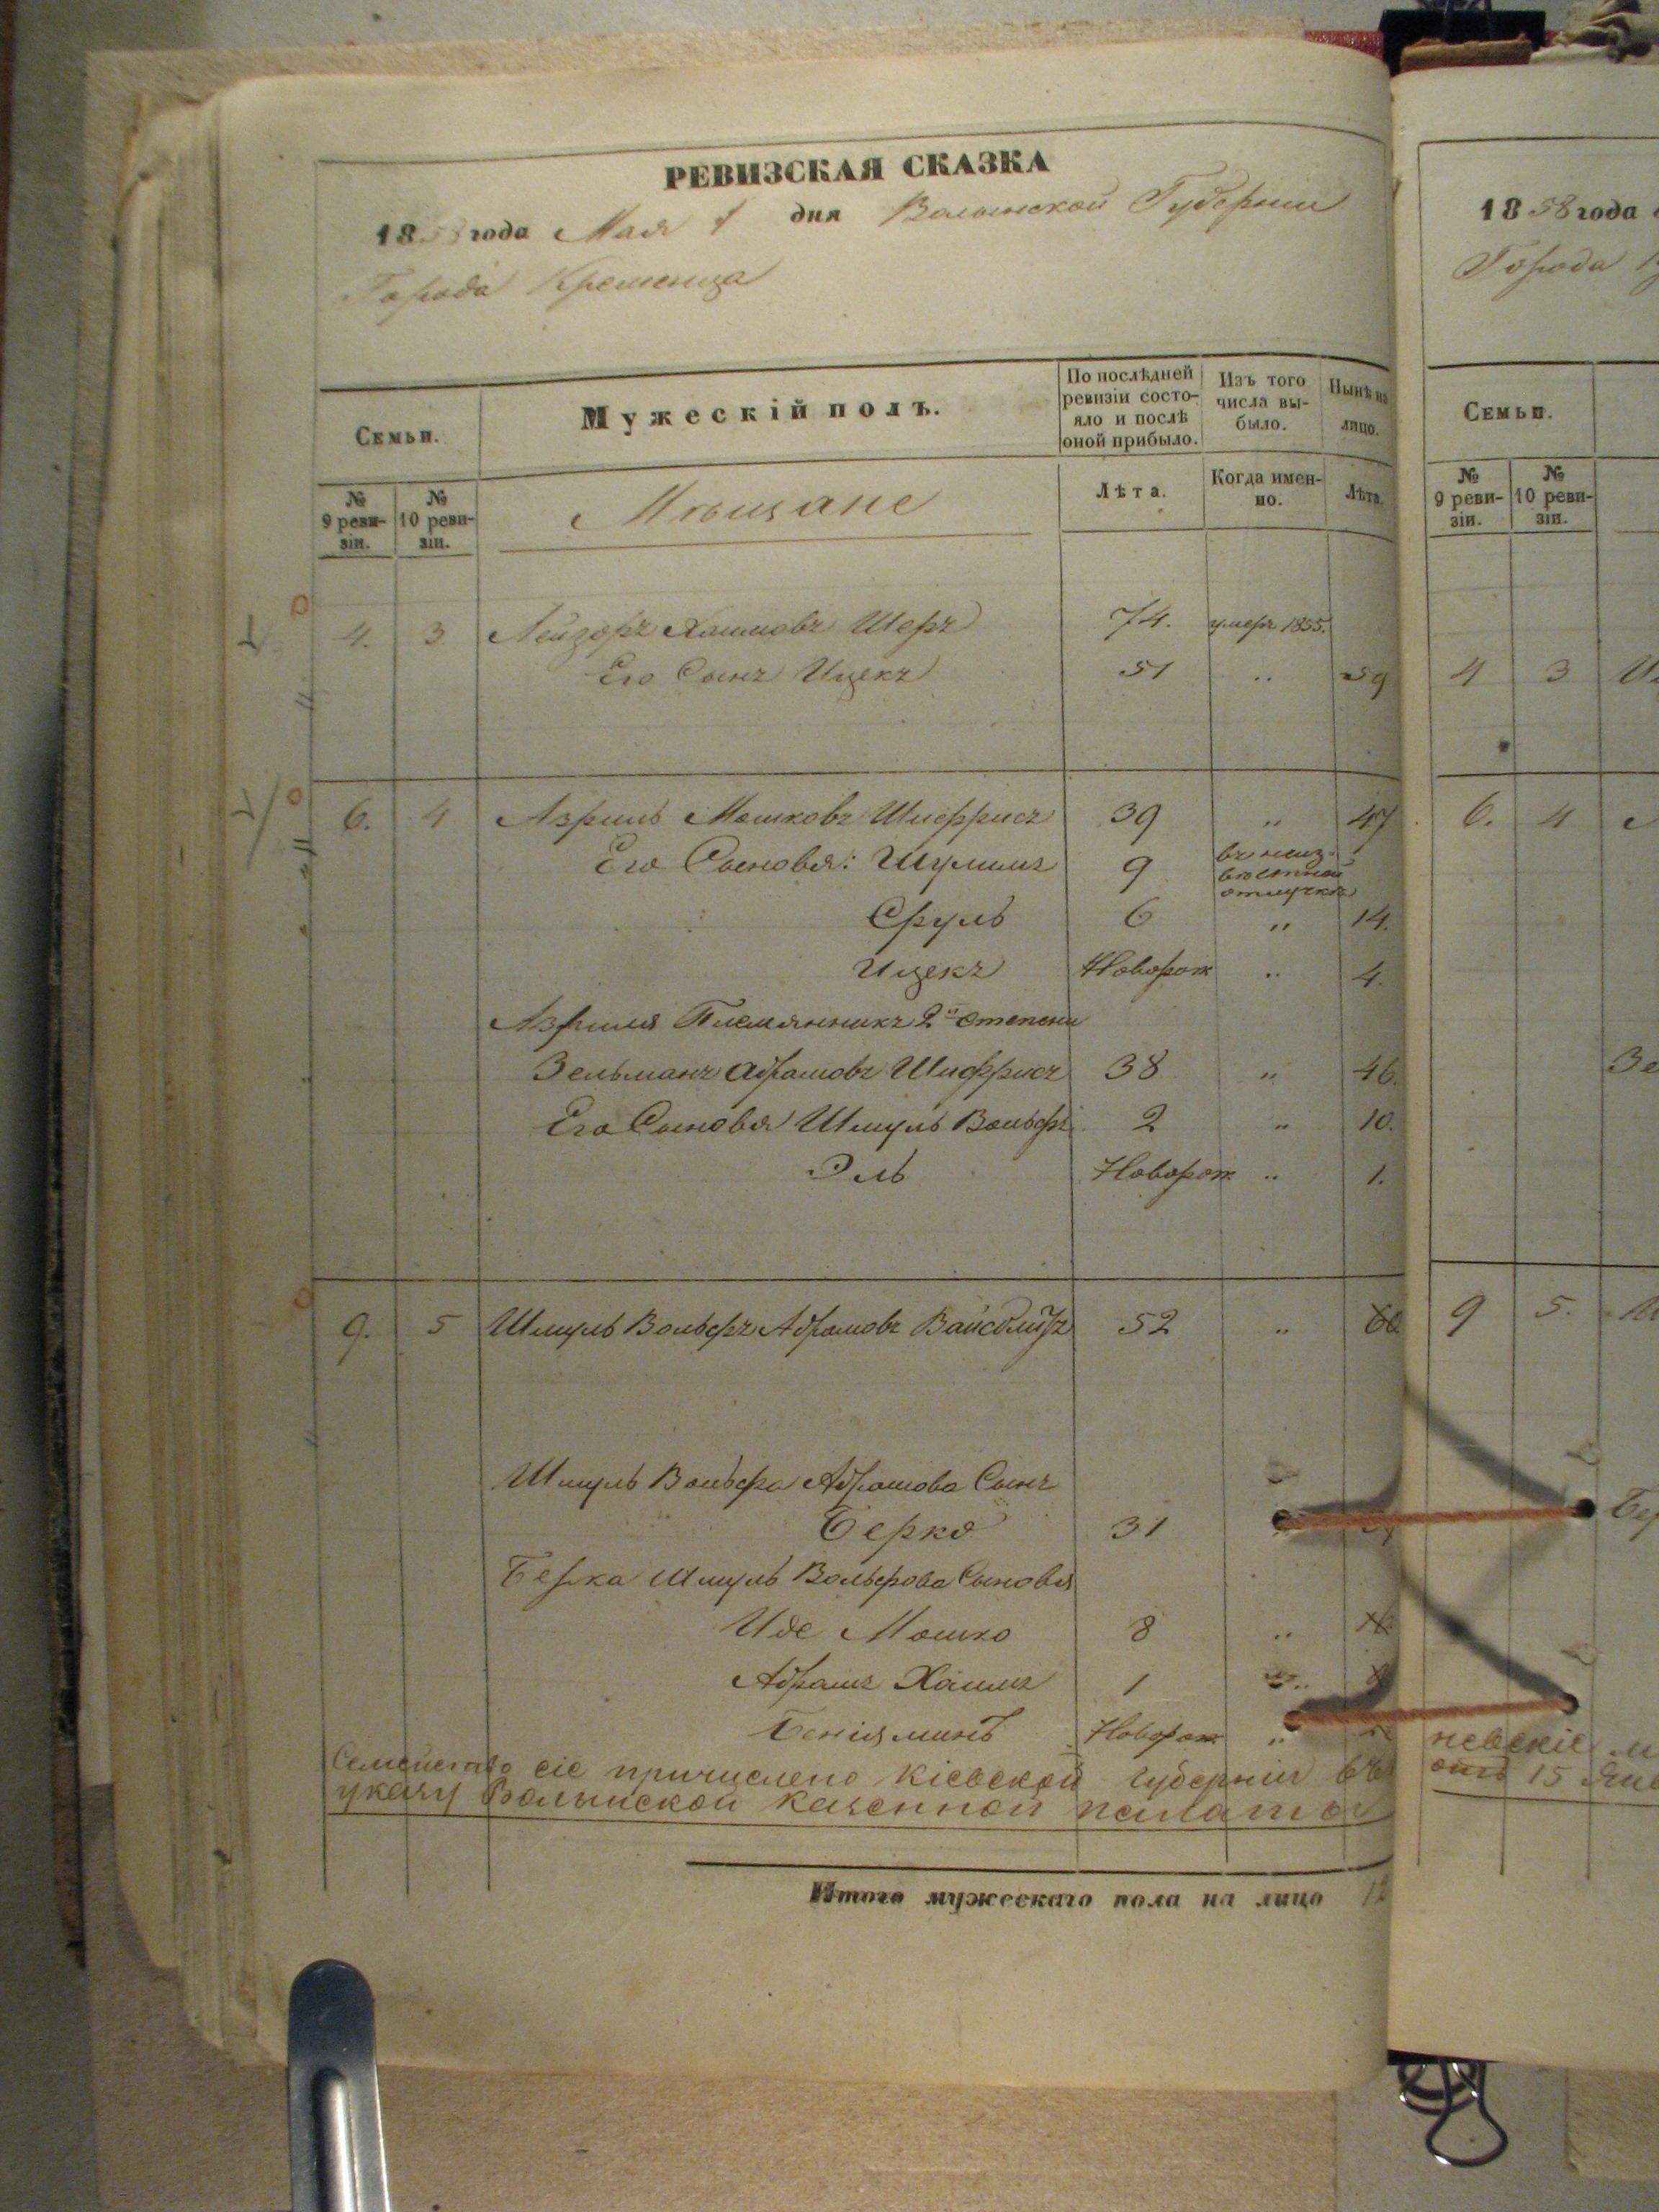 РЕВИЗСКАЯ СКАЗКА
1858 года Мая 1 дня Волынской Губернии
Города Кременца
Семьи.
Мужескій полъ.
По послѣдней ревизіи состо-
яло и послѣ оной прибыло.
Изъ того числа вы-
было.
Нынѣ на лицо.
№ 9 реви-
зіи.
№ 10 реви-
зіи.
Мѣщане
Лѣта.
Когда имен-
но.
Лѣта.
4. 3 Лейзоръ Хаимовъ Шеръ 74. умеръ 1855.
Его Сынъ Ицекъ 51 " 59
6. 4 Азриль Мошковъ Шифрисъ 39 " 47
Его Сыновья: Шулимъ 9 въ неиз-
вѣстной
отлучкѣ
Сруль 6 " 14.
Ицекъ Новорож " 4.
Азриля Племянникъ 2й степени
Зельманъ Абрамовъ Шифрисъ 38 " 46.
Его Сыновья Шмуль Вольфъ 2 " 10.
Эль Новорож " 1.
9. 5 Шмуль Вольфъ Абрамовъ 52 " 60
Шмуль Вольфа Абрамова Сынъ
Берко 31
Берка Шмуль Вольфова Сыновья
Иде Мошко 8 "
Абрамъ Хаимъ 1
Беніяминъ Новорож "
Семейство сіе причислено Кіевской Губерніи въ
указу Волынской Казенной палаты
Итого мужескаго пола на лицо
1858 года
Города
Семьи.
№ 9 реви-
зіи.
№ 10 реви-
зіи.
4 3
6. 4
Зе
9 5.
Бер
отъ 15